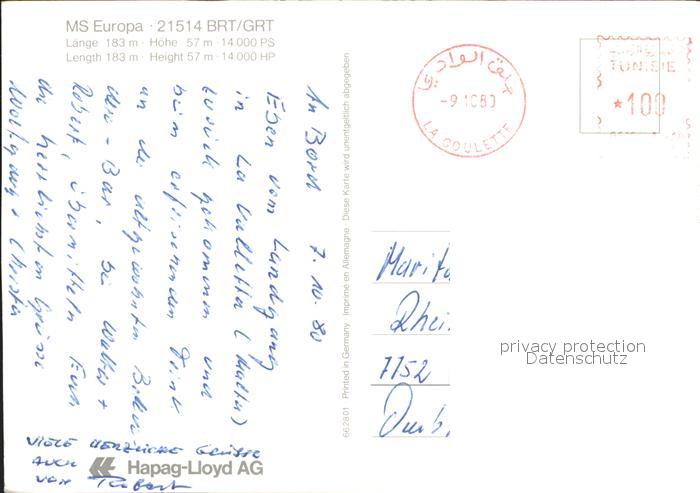 MS Europa · 21514 BRT/GRT
Länge 183 m · Höhe 57 m · 14.000 PS
Length 183 m · Height 57 m · 14.000 HP
An Bord 7.10.80
Eben vom Landgang
in La Valletta (Malta)
zurück gekommen und
beim erfrischenden Drink
an der
der - Bar, bei Walter +
Robert, übermitteln Euch
die herzlichsten Grüsse
Wolfgang + Christa
VIELE HERZLICHE GRÜSSE
AUCH
VON Robert
Hapag-Lloyd AG
662801 Printed in Germany · Imprimé en Allemagne · Diese Karte wird unentgeltlich abgegeben
حلق الوادي
-9 10 80
LA GOULETTE
TUNISIE
*100
Marit
Rhei
7152
privacy protection
Datenschutz